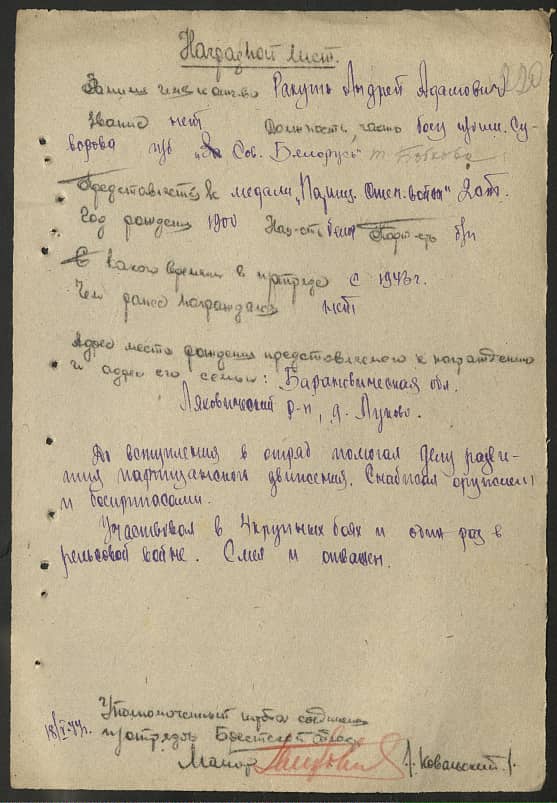 Наградной лист.
220
Фамилия имя отчество Ракуть Андрей Адамович
Звание нет Должность, часть боец п/отр. им. Су-
ворова п/б "Сов. Белорусь" т. Бобкова
Представляется к медали "Партиз. Отеч. войны" 2 ст.
Год рождения 1900 Нац-сть бел. Парт-сть б/п
С какого времени в п/отряде с 1943 г.
Чем ранее награждался нет
Адрес место рождения представляемого к награждению
и адрес его семьи: Барановическая обл.
Ляховичский р-н, д. Луково.
До вступления в отряд помогал делу разви-
тия партизанского движения. Снабжал оружием
и боеприпасами.
Участвовал в 4 крупных боях и один раз в
рельсовой войне. Смел и отважен.
Уполномоченный штаба соединения
18/V-44г. п/отрядов Брестской
Майор /. Ковальский /.